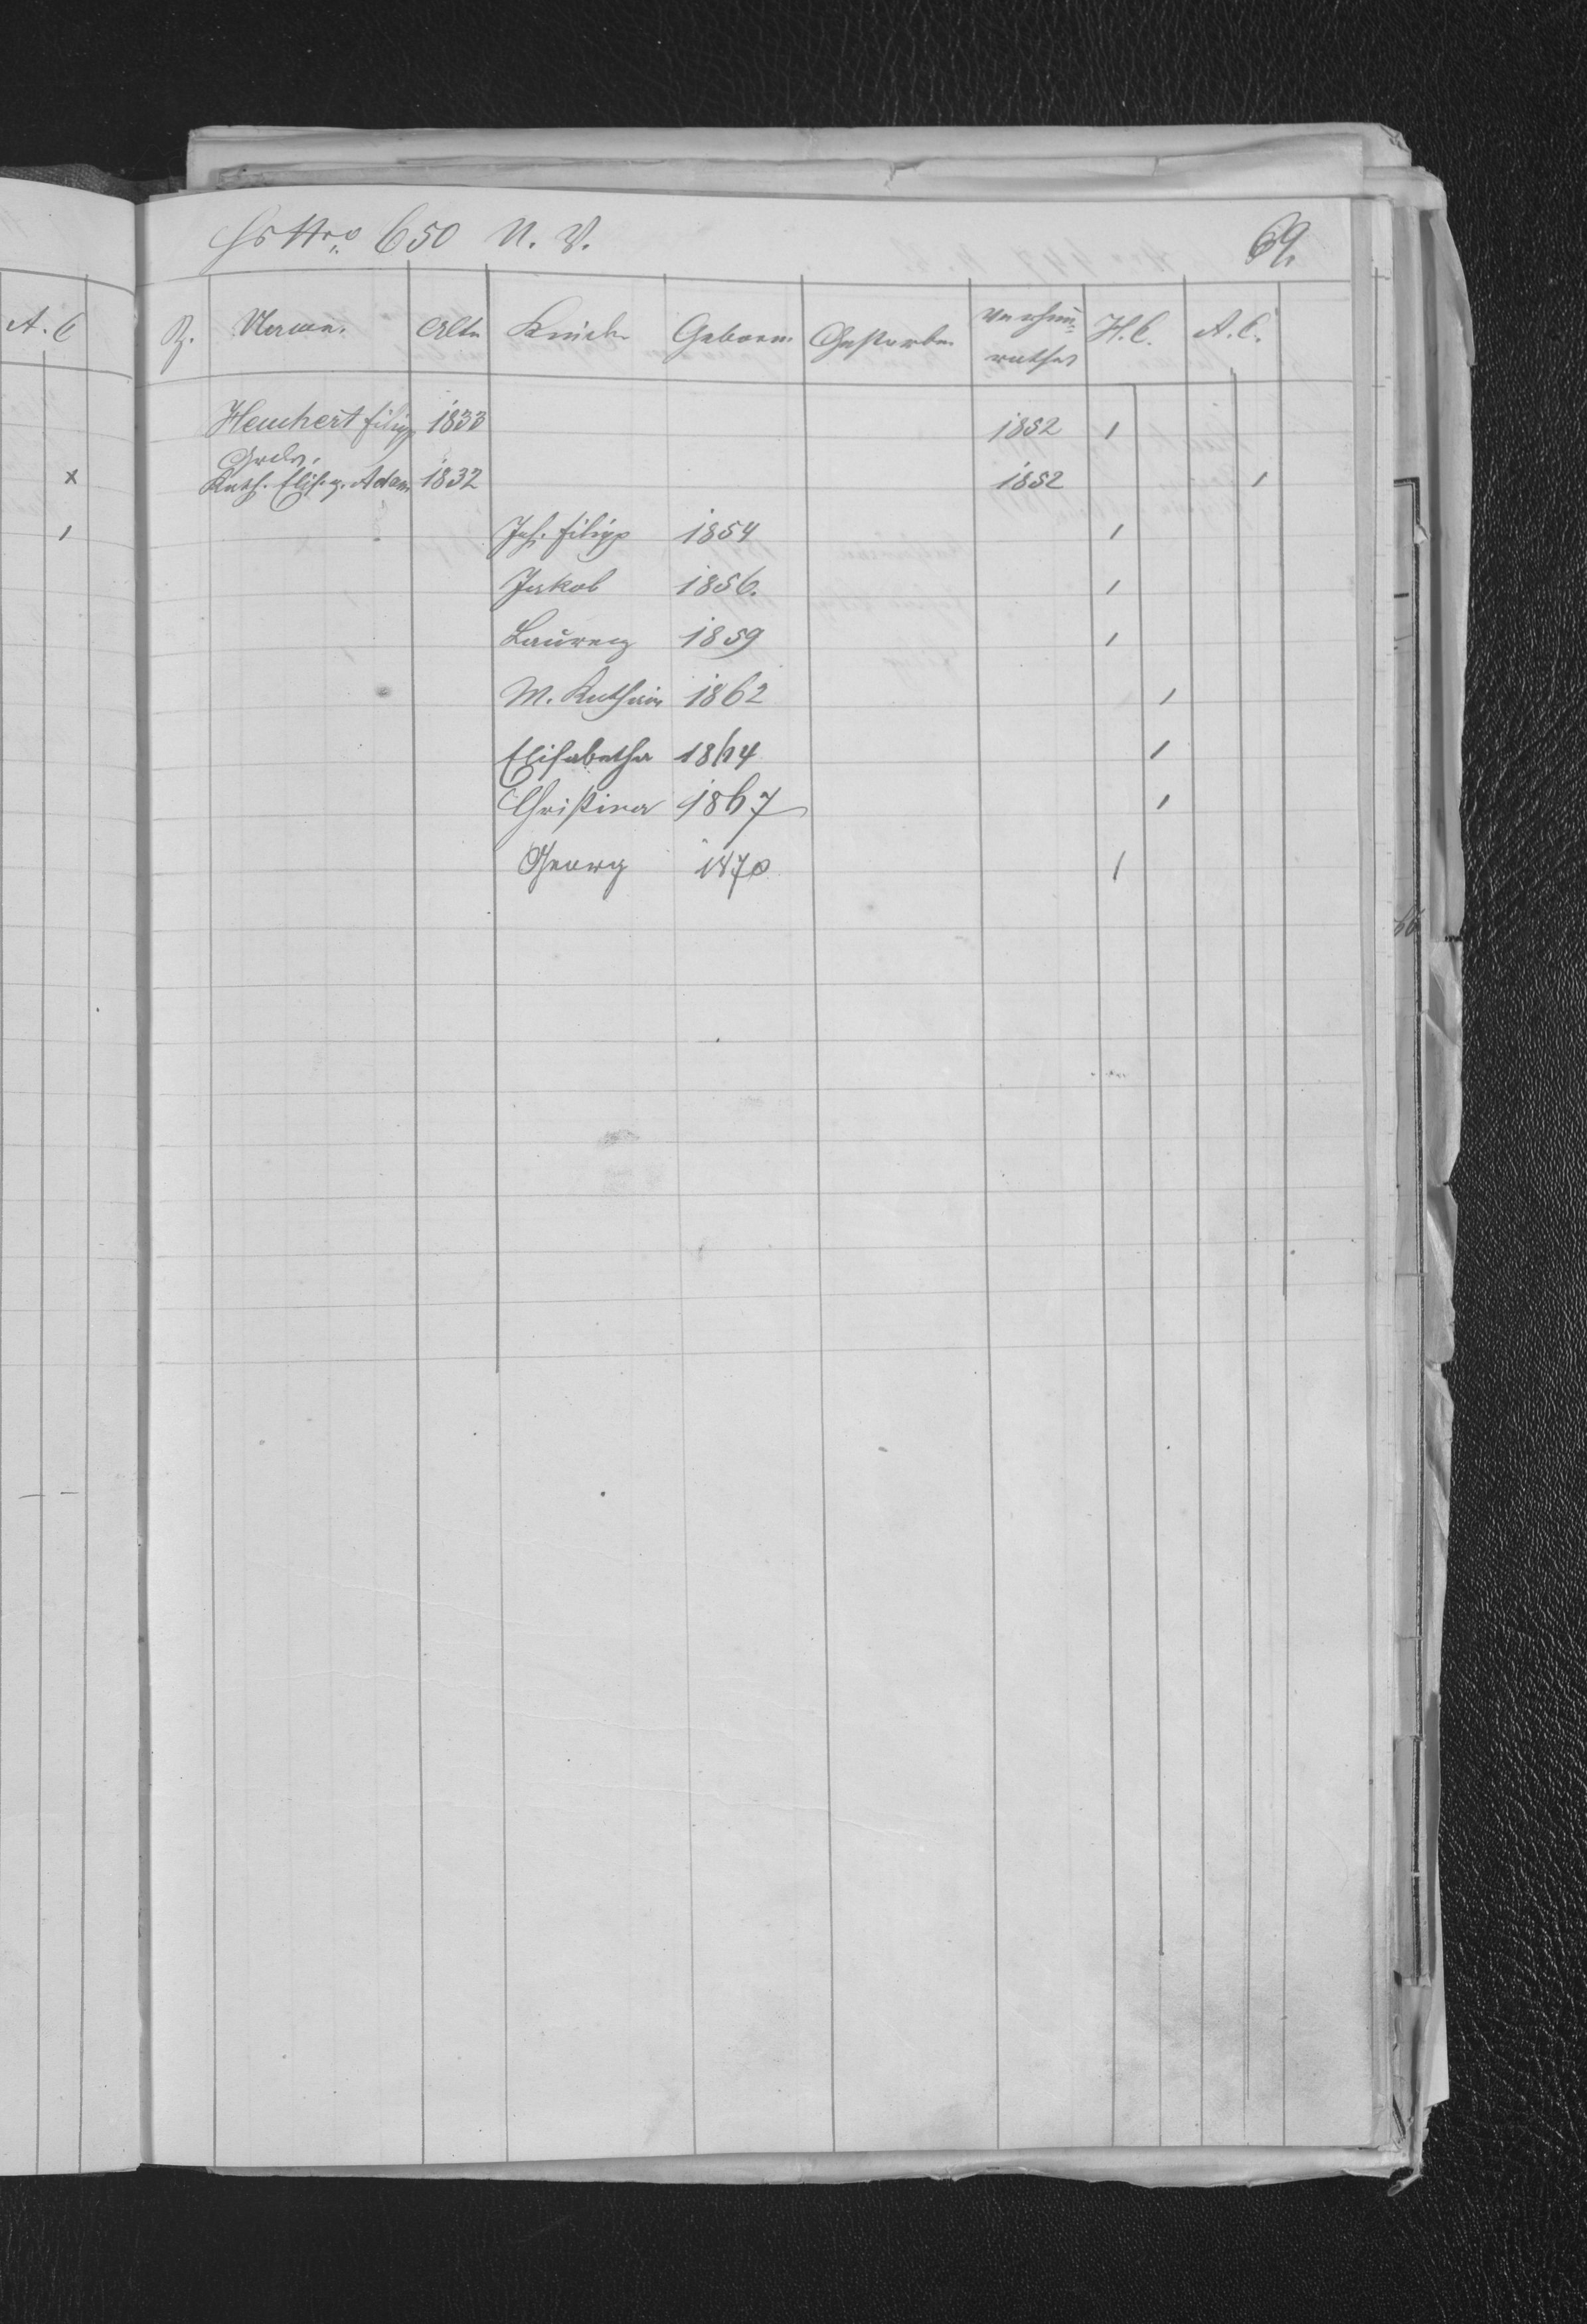 A. C
x
1
Hs Nro 650 N. V.
69.
Z. Namen. Alter Kinder Geboren Gestorben Verheu-
rathet H. C. A. C.
Heuchert Filipp 1833 1852 1
Kath. Elis. g. Adam 1832 1852 1
Joh. Filipp 1854 1
Jakob 1856. 1
Laurenz 1859 1
M. Kathari 1862 1
Elisabetha 1864 1
Christina 1867 1
Georg 1870 1